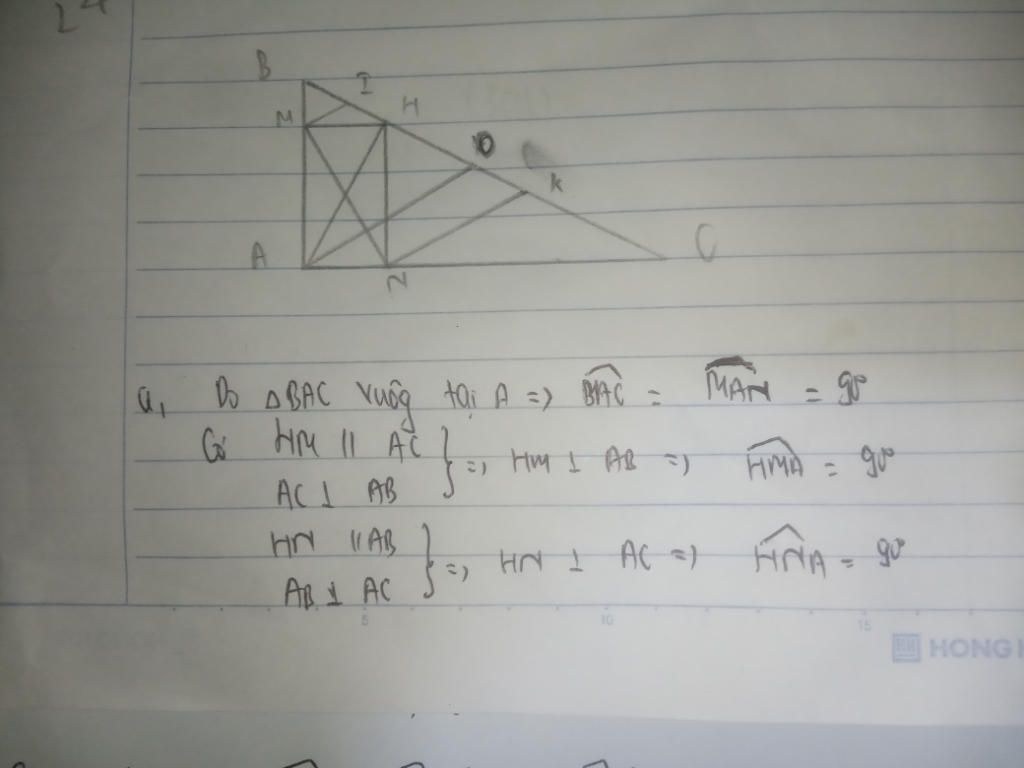 24
B
I
M
H
O
K
A
N
C
a, Do △BAC vuông tại A => BAC = MAN = 90°
Có HM // AC
AC ⊥ AB } => HM ⊥ AB => HMA = 90°
HN // AB
AB ⊥ AC } => HN ⊥ AC => HNA = 90°
5 10 15
HONG